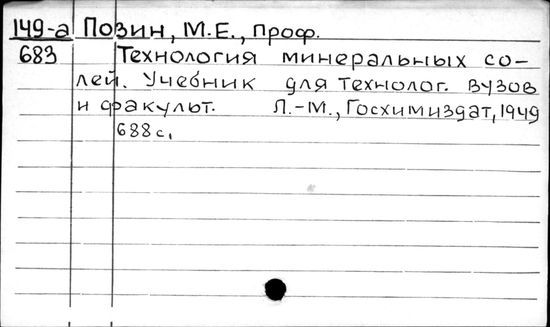 149-а Позин, М.Е., проф.
683 Технология минеральных со-
лей. Учебник для технолог. вузов
и факульт. Л.-М., Госхимиздат, 1949
688 с,